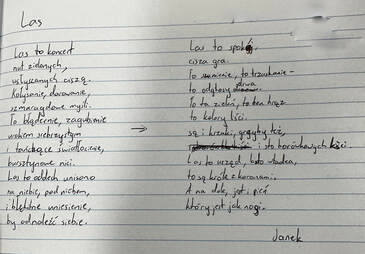 Las
Las to koncert
nut zielonych,
usłyszanych ciszą.
Kołysanie, darowanie,
szmaragdowe myśli.
To błądzenie, zagubienie
wiatrem srebrzystym
i tańczące światłocienie,
bursztynowe nici.
Las to oddech unisono
na niebie, pod niebem,
i błękitne uniesienie,
by odnaleźć siebie.
→
Las to spokój,
cisza gra.
To szumienie, to trzaskanie –
to odgłosy drwa
To ta zieleń, to ten brąz
to kolory liści.
są i krzaki, grzyby też,
i sto borówkowych kiści.
Las to urząd, buto władca,
to są króle z koronami.
A na dole, jest i pień
który jest jak nogi.
Janek